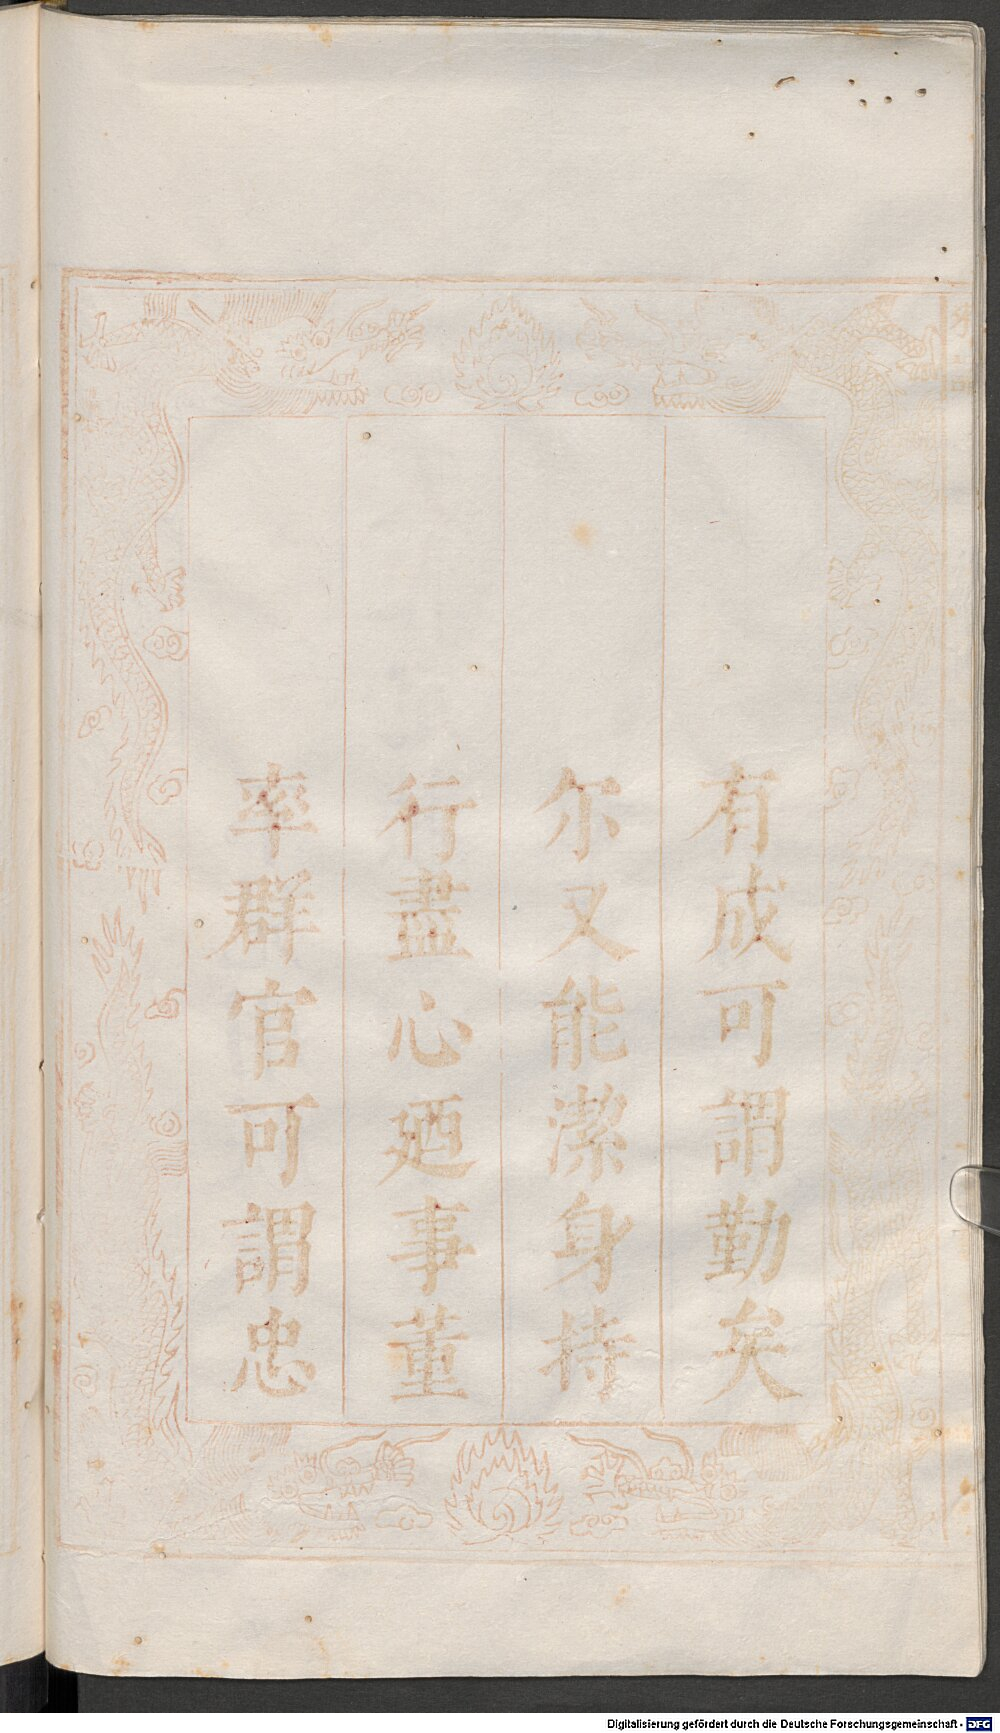 有成可謂勤矣
尓又能潔身持
行盡心廼事董
率群官可謂忠
Digitalisierung gefördert durch die Deutsche Forschungsgemeinschaft - DFG